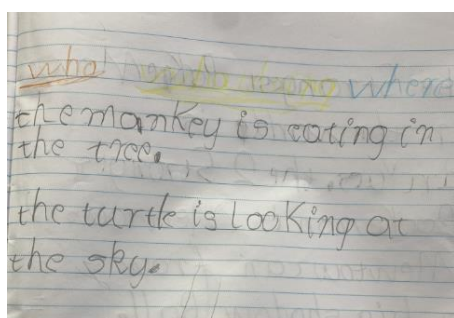 who doing where
the mankey is eating in
the tree.
the turtle is looking at
the sky.